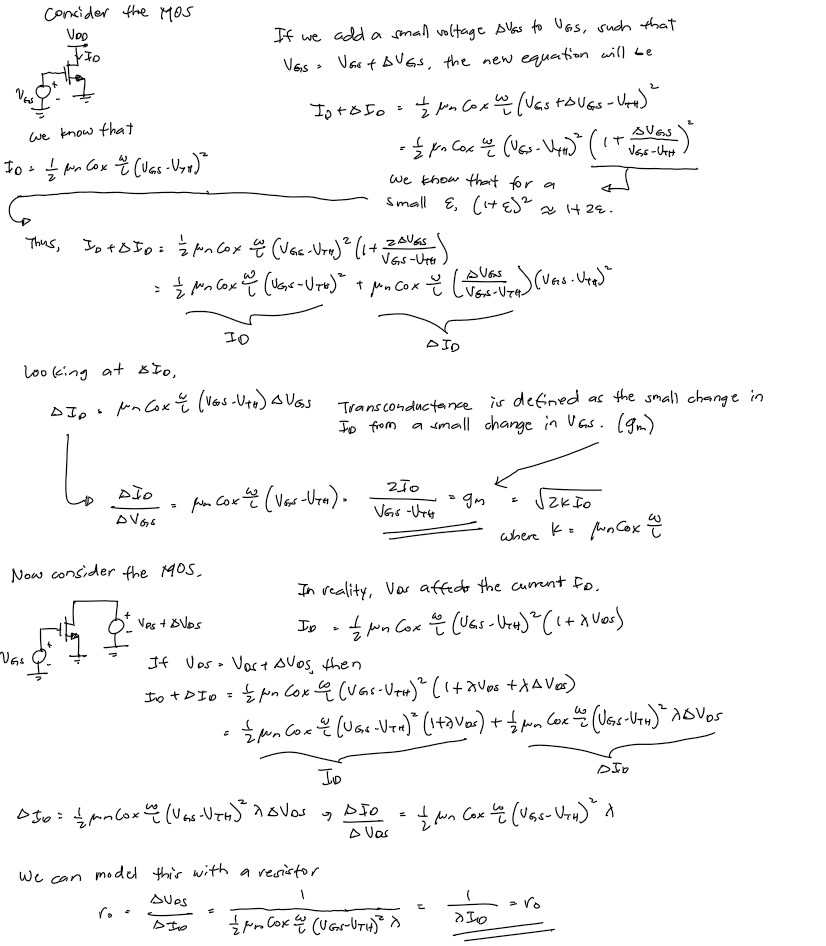 Consider the MOS
VDD
ID
VGS
+
-
we know that
ID = 1/2 μn Cox W/L (VGS - VTH)²
If we add a small voltage ΔVGS to VGS, such that
VGS = VGS + ΔVGS, the new equation will be
ID + ΔID = 1/2 μn Cox W/L (VGS + ΔVGS - VTH)²
= 1/2 μn Cox W/L (VGS - VTH)² (1 + ΔVGS/(VGS - VTH))²
we know that for a
small ε, (1+ε)² ≈ 1+2ε.
Thus, ID + ΔID = 1/2 μn Cox W/L (VGS - VTH)² (1 + 2ΔVGS/(VGS - VTH))
= 1/2 μn Cox W/L (VGS - VTH)² + μn Cox W/L (ΔVGS/(VGS - VTH)) (VGS - VTH)²
ID
ΔID
Looking at ΔID,
ΔID = μn Cox W/L (VGS - VTH) ΔVGS
Transconductance is defined as the small change in
ID from a small change in VGS. (gm)
ΔID/ΔVGS = μn Cox W/L (VGS - VTH) = 2ID/(VGS - VTH) = gm = √(2kID)
where k = μn Cox W/L
Now consider the MOS.
VGS
+
-
+
-
VDS + ΔVDS
In reality, VDS affects the current ID.
ID = 1/2 μn Cox W/L (VGS - VTH)² (1 + λVDS)
If VDS = VDS + ΔVDS, then
ID + ΔID = 1/2 μn Cox W/L (VGS - VTH)² (1 + λVDS + λΔVDS)
= 1/2 μn Cox W/L (VGS - VTH)² (1 + λVDS) + 1/2 μn Cox W/L (VGS - VTH)² λΔVDS
ID
ΔID
ΔID = 1/2 μn Cox W/L (VGS - VTH)² λΔVDS → ΔID/ΔVDS = 1/2 μn Cox W/L (VGS - VTH)² λ
We can model this with a resistor
ro = ΔVDS/ΔID = 1/(1/2 μn Cox W/L (VGS - VTH)² λ) = 1/(λID) = ro